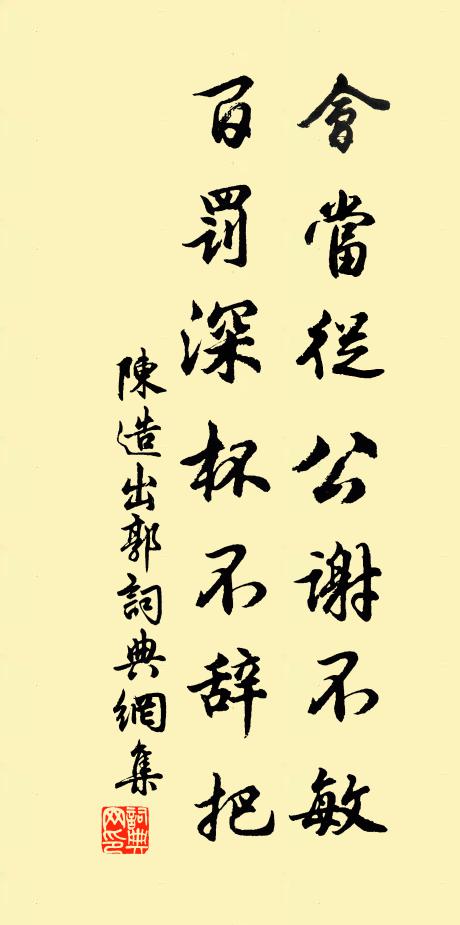 會當從公謝不敏
百罰深杯不辞把
陳造出郭詞典網集
詞典
网印